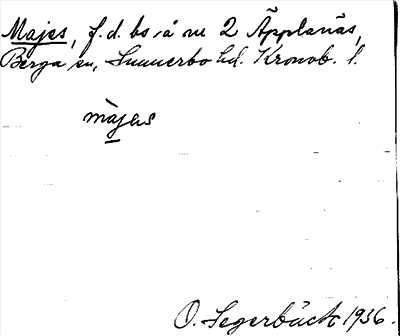 Majes, f.d. bs å nr 2 Äpplanäs,
Berga sn, Sunnerbo hd. Kronob. l.
màjas
O. Segerbäck 1936.